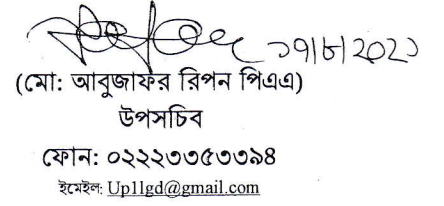 ১৭/৮/২০২১
(মো: আবুজাফর রিপন পিএএ)
উপসচিব
ফোন: ০২২২৩৩৫৩৩৯৪
ইমেইল: Up1lgd@gmail.com